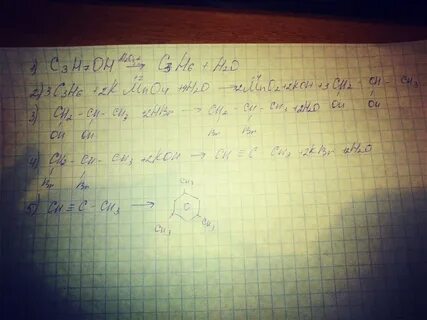 1) C3H7OH → C3H6 + H2O
2) 3C3H6 + 2KMnO4 + 4H2O → 2MnO2 + 2KOH + 3CH2 - CH - CH3
OH OH
3) CH2 - CH - CH3 + 2HBr → CH2 - CH - CH3 + 2H2O
OH OH Br Br
4) CH2 - CH - CH3 + 2KOH → CH ≡ C - CH3 + 2KBr + 2H2O
Br Br
5) CH ≡ C - CH3 →
CH3
CH3 CH3